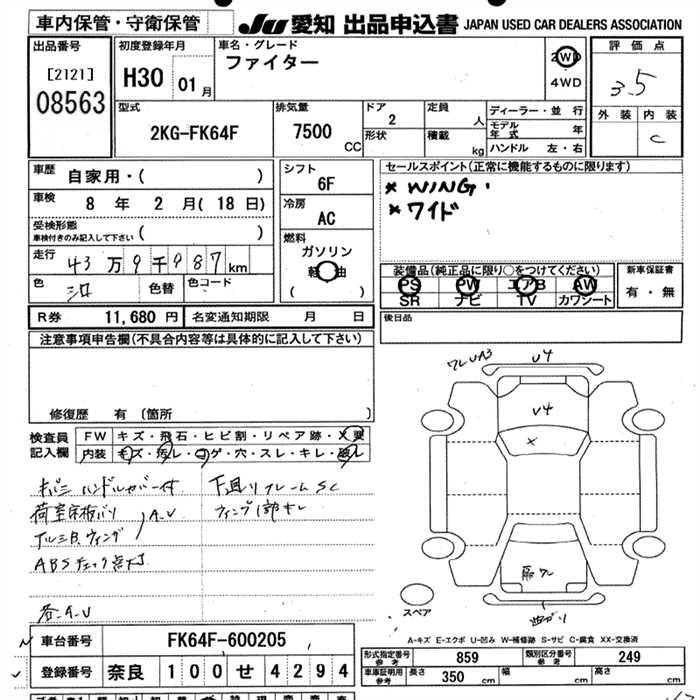 車内保管・守衛保管
JU 愛知 出品申込書 JAPAN USED CAR DEALERS ASSOCIATION
出品番号
[2121]
08563
初度登録年月
H30 01月
車名・グレード
ファイター
2WD
・
4WD
評価点
3.5
外装 内装
C
型式
2KG-FK64F
排気量
7500 CC
ドア
2
形状
定員 人
積載 kg
ディーラー・並 行
モデル年式 年
ハンドル 左・右
車歴 自家用・( )
車検 8 年 2 月( 18 日)
受検形態
車検付きのみ記入して下さい ( )
走行 43万9千987km
色 シロ 色替 色コード
シフト
6F
冷房
AC
燃料
ガソリン
軽 油
( )
セールスポイント(正常に機能するものに限ります)
* WING・
* ワイド
装備品(純正品に限り○をつけてください)
PS PW エアB AW
SR ナビ TV カワシート
新車保証書
有・無
後日品
R券 11,680 円 名変通知期限 月 日
注意事項申告欄(不具合内容等は具体的に記入して下さい)
修復歴 有 (箇所 )
検査員
記入欄
FW キズ・飛石・ヒビ割・リペア跡・X要
内装 キズ・汚レ・コゲ・穴・スレ・キレ・破レ
ハンドルカバー付
下回りフレームSC
アルミB.ウィング
A.U
ABSチェック点灯
各A.U
ワレUA3
U4
U4
X
スペア
A-キズ E-エクボ U-凹み W-補修跡 S-サビ C-腐食 XX-交換済
車台番号 FK64F-600205
登録番号 奈良 100 せ 4294
形式指定番号
参考
859
類別区分番号
参考
249
車庫証明用
参考
長さ 350 cm 幅 cm 高さ cm